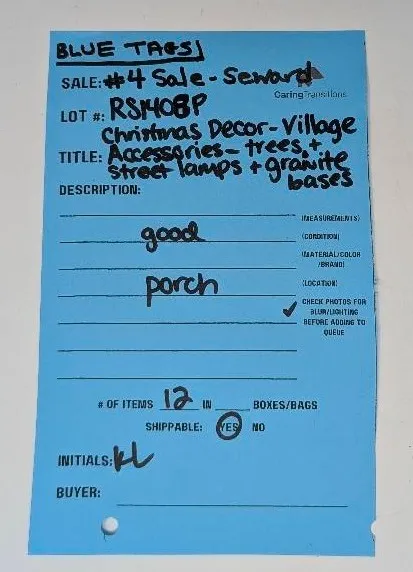 BLUE TAGS
SALE: #4 Sale - Seward
CaringTransitions
LOT #: RS1408P
Christmas Decor - Village
TITLE: Accessories - trees, +
street lamps + granite
bases
DESCRIPTION:
(MEASUREMENTS)
good (CONDITION)
(MATERIAL/COLOR
/BRAND)
porch (LOCATION)
✓ CHECK PHOTOS FOR
BLUR/LIGHTING
BEFORE ADDING TO
QUEUE
# OF ITEMS 12 IN ___ BOXES/BAGS
SHIPPABLE: YES NO
INITIALS: KL
BUYER: